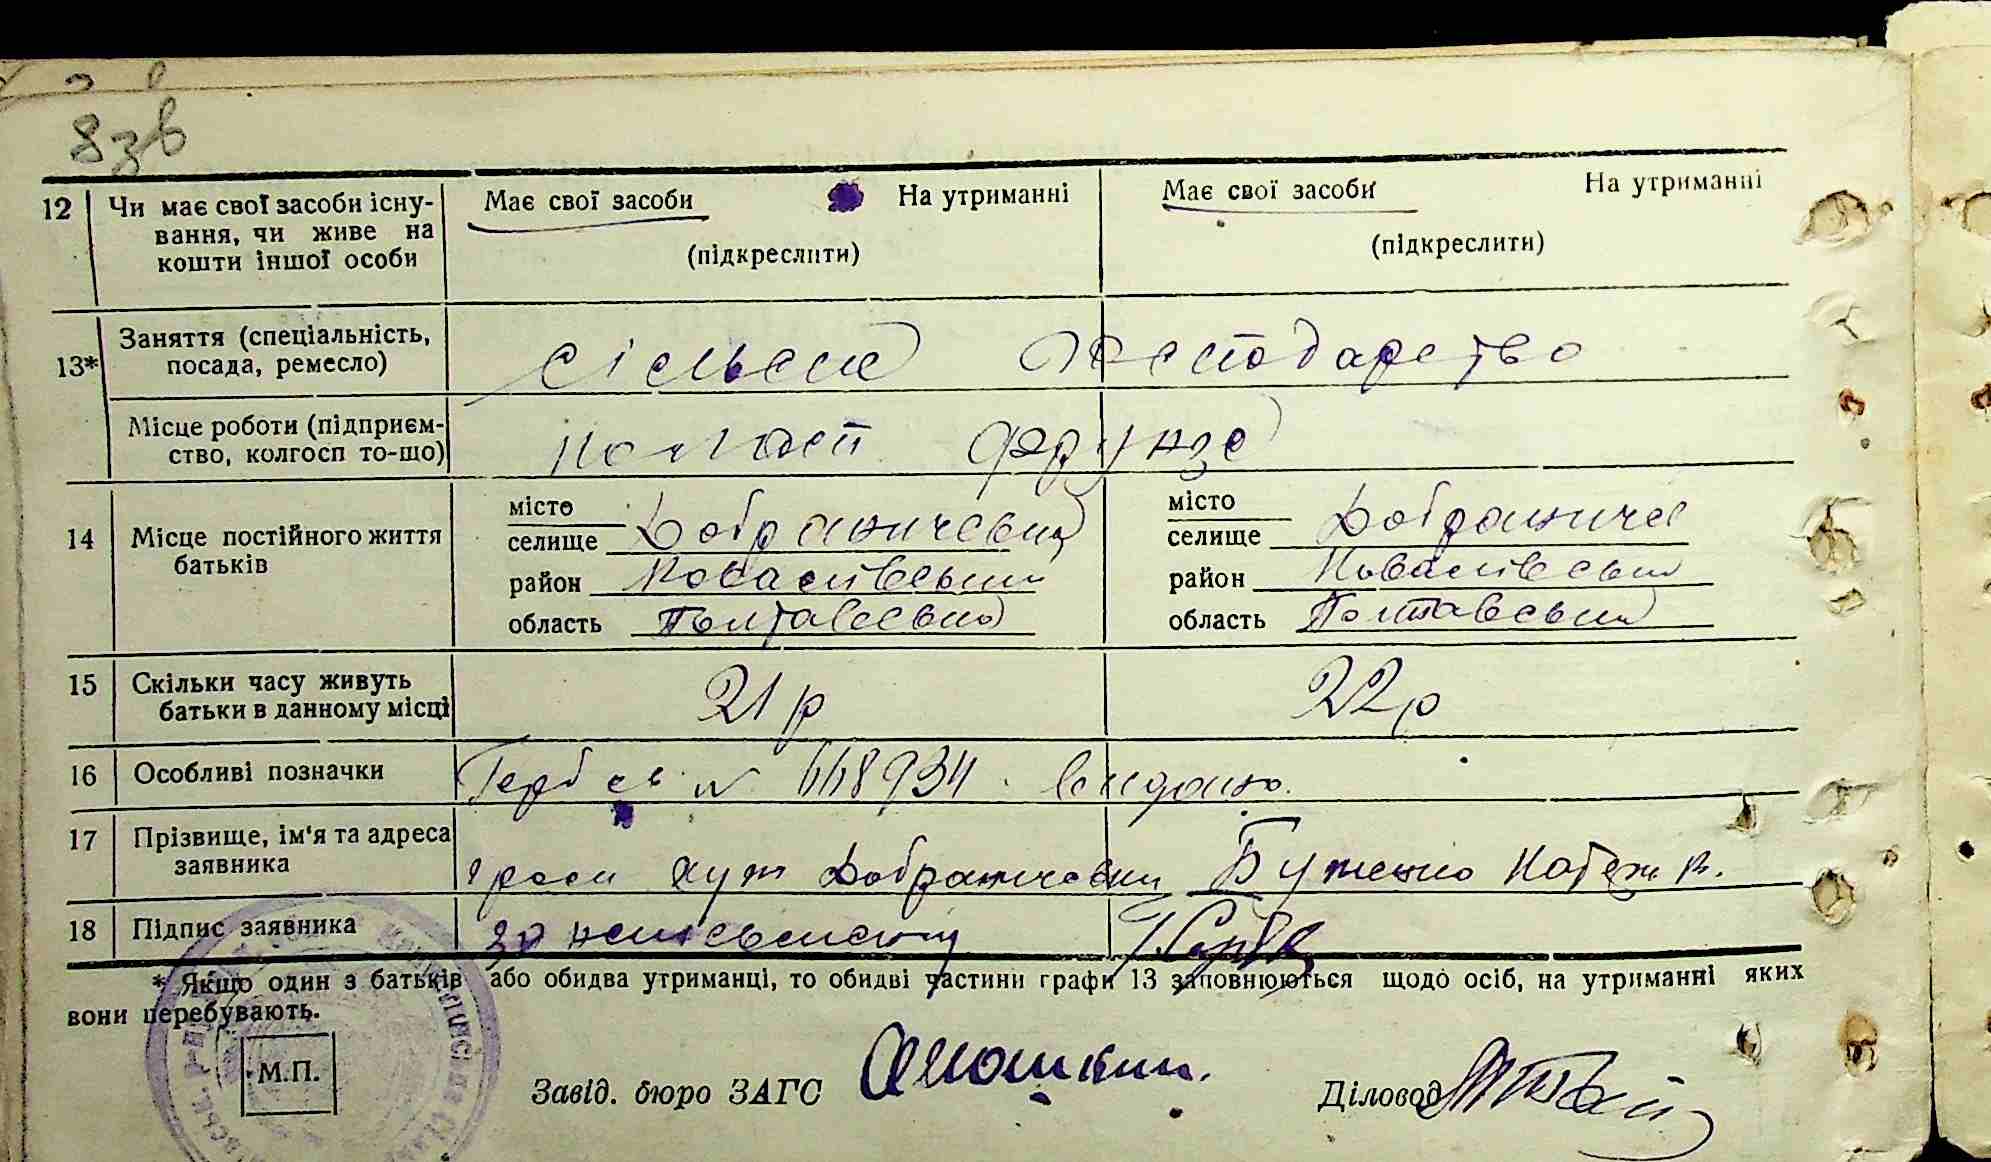 8зв
12 Чи має свої засоби існу- Має свої засоби На утриманні Має свої засоби На утриманні
вання, чи живе на
кошти іншої особи (підкреслити) (підкреслити)
13* Заняття (спеціальність,
посада, ремесло) сільське господарство
Місце роботи (підприєм-
ство, колгосп то-що) колгосп Фрунзе
14 Місце постійного життя
батьків
місто місто
селище Добраничевки селище Добраниче
район район
область Полтавський область Полтавський
15 Скільки часу живуть
батьки в данному місці 21 р 22 р
16 Особливі позначки Герб св. № 448934 видано.
17 Прізвище, ім'я та адреса
заявника хут Добраничевки Бутенко
18 Підпис заявника
* Якщо один з батьків або обидва утриманці, то обидві частини графи 13 заповнюються щодо осіб, на утриманні яких
вони перебувають.
М.П.
Завід. бюро ЗАГС Діловод